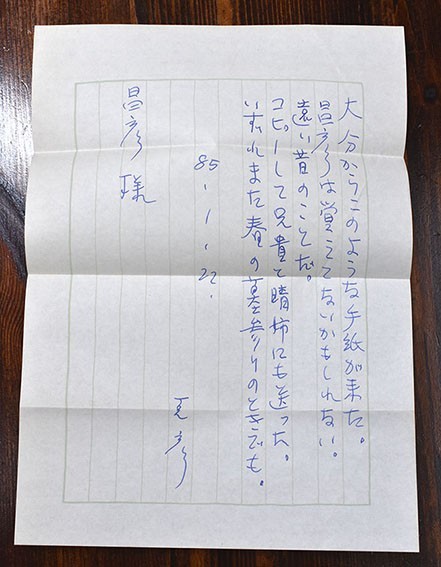 大分からこのような手紙が来た。
昌彦は覚えてないかもしれない。
遠い昔のことだ。
コピーして兄貴と晴柿にも送った。
いずれまた春の墓参りのときでも。
85.1.22.
夏彦
昌彦様